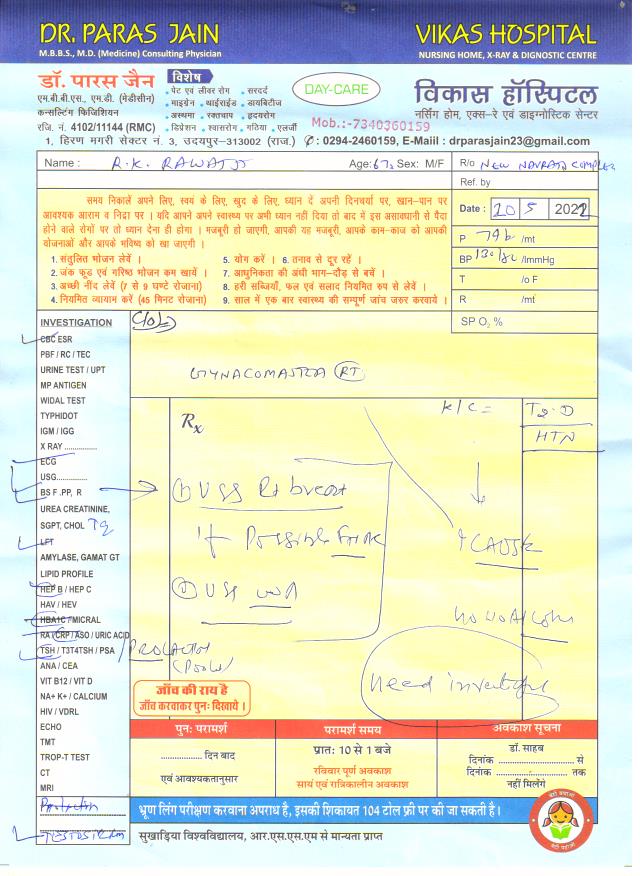 DR. PARAS JAIN
M.B.B.S., M.D. (Medicine) Consulting Physician
VIKAS HOSPITAL
NURSING HOME, X-RAY & DIGNOSTIC CENTRE
डॉ. पारस जैन
एम.बी.बी.एस., एम.डी. (मेडीसीन)
कन्सल्टिंग फिजिशियन
रजि. नं. 4102/11144 (RMC)
विशेष
• पेट एवं लीवर रोग • सरदर्द
• माइग्रेन • थाईराईड • डायबिटीज
• अस्थमा • रक्तचाप • हृदयरोग
• डिप्रेशन • श्वासरोग • गठिया • एलर्जी
DAY-CARE
Mob.:-7340360159
विकास हॉस्पिटल
नर्सिंग होम, एक्स-रे एवं डाइग्नोस्टिक सेन्टर
1, हिरण मगरी सेक्टर नं. 3, उदयपुर-313002 (राज.) ✆ : 0294-2460159, E-Maiil : drparasjain23@gmail.com
Name : R.K. RAWAT Age: 67 Sex: M/F
R/o NEW NAVRATN COMPLEX
Ref. by
Date : 20 5 2022
P 79 /mt
BP 130/80 /lmmHg
T /o F
R /mt
SP O₂ %
समय निकालें अपने लिए, स्वयं के लिए, खुद के लिए, ध्यान दें अपनी दिनचर्या पर, खान-पान पर
आवश्यक आराम व निद्रा पर । यदि आपने अपने स्वास्थ्य पर अभी ध्यान नहीं दिया तो बाद में इस असावधानी से पैदा
होने वाले रोगों पर तो ध्यान देना ही होगा । मजबूरी हो जाएगी, आपकी यह मजबूरी, आपके काम-काज को आपकी
योजनाओं और आपके भविष्य को खा जाएगी ।
1. संतुलित भोजन लेवें ।
2. जंक फूड एवं गरिष्ठ भोजन कम खायें ।
3. अच्छी नींद लेवें (7 से 9 घण्टे रोजाना)
4. नियमित व्यायाम करें (45 मिनट रोजाना)
5. योग करें । 6. तनाव से दूर रहें ।
7. आधुनिकता की अंधी भाग-दौड़ से बचें ।
8. हरी सब्जियाँ, फल एवं सलाद नियमित रुप से लेवें ।
9. साल में एक बार स्वास्थ्य की सम्पूर्ण जांच जरुर करवाये ।
C/o
GYNACOMASTIA RT
K/C =
T2D
HTN
INVESTIGATION
CBC ESR
PBF / RC / TEC
URINE TEST / UPT
MP ANTIGEN
WIDAL TEST
TYPHIDOT
IGM / IGG
X RAY ..............
ECG
USG..............
BS F .PP, R
UREA CREATININE,
SGPT, CHOL Tg
LFT
AMYLASE, GAMAT GT
LIPID PROFILE
HEP B / HEP C
HAV / HEV
HBA1C / MICRAL
RA / CRP / ASO / URIC ACID
TSH / T3T4TSH / PSA / PROLACTIN
(Pooled)
ANA / CEA
VIT B12 / VIT D
NA+ K+ / CALCIUM
HIV / VDRL
ECHO
TMT
TROP-T TEST
CT
MRI
Prolactin
TESTOSTERON
Rx
① USG Rt breast
if Possible FNAC
② USG W/A
? CAUSE
No H/o Alcohol
Need investigation
जाँच की राय है
जाँच करवाकर पुनः दिखाये ।
पुनः परामर्श
.............. दिन बाद
एवं आवश्यकतानुसार
परामर्श समय
प्रातः 10 से 1 बजे
रविवार पूर्ण अवकाश
सायं एवं रात्रिकालीन अवकाश
अवकाश सूचना
डॉ. साहब
दिनांक .............. से
दिनांक .............. तक
नहीं मिलेंगे
भ्रूण लिंग परीक्षण करवाना अपराध है, इसकी शिकायत 104 टोल फ्री पर की जा सकती है।
सुखाड़िया विश्वविद्यालय, आर.एस.एस.एम से मान्यता प्राप्त